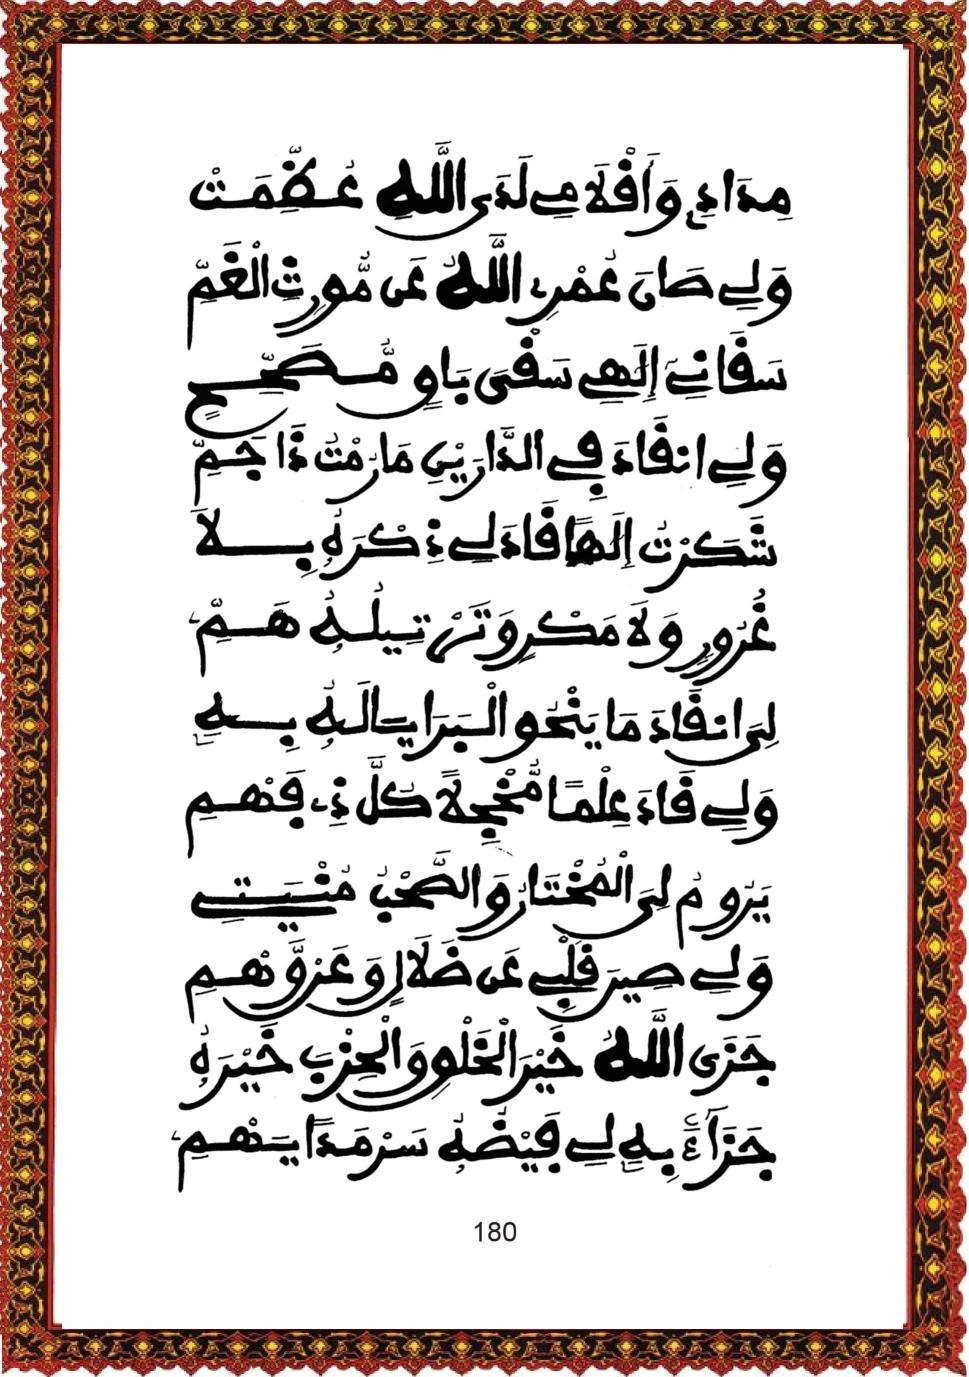 مِدَادِي وَأَقْلَامِي لَدَى اللَّهِ عُظِّمَتْ
وَلِي صَانَ عُمْرِي اللَّهُ عَن مُّورِثِ الْغَمِّ
سَقَانِيَ إِلَهِي سَقْيَ بَاقٍ مُّصَحِّحٍ
وَلِي انقَادَ فِي الدَّارَيْنِ مَا رُمْتُ ذَا جَمِّ
شَكَرْتُ إِلَهًا قَادَ لِي ذِكْرَهُ بِلَا
غُرُورٍ وَلَا مَكْرٍ وَتَرْتِيلُهُ هَمِّ
لِيَ انقَادَ مَا يَنْحُو الْبَرَايَا لَهُ بِهِ
وَلِي قَادَ عِلْمًا مُّخْجِلًا كُلَّ ذِي فَهْمِ
يَرُومُ لِيَ الْمُخْتَارُ وَالصَّحْبُ مُنْيَتِي
وَلِي صِينَ قَلْبِي عَن ضَلَالٍ وَعَن وَهْمِ
جَزَى اللَّهُ خَيْرَ الْخَلْقِ وَالْحِزْبَ خَيْرَهُ
جَزَاءً بِهِ لِي فَيْضُهُ سَرْمَدًا يَهْمِ
180